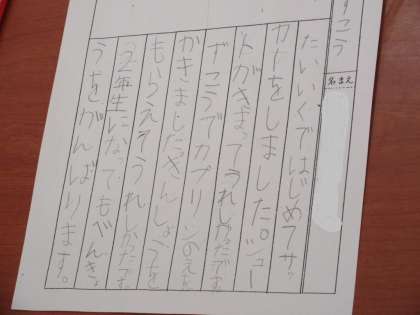 すこう
名まえ
たいいくではじめてサッ
カーをしました。シュー
トがきまってうれしかったです
ずこうでカプリンのえを
かきました。さんしょうを
もらえそうれしかったです。
2年生になってもべんきょ
うをがんばります。